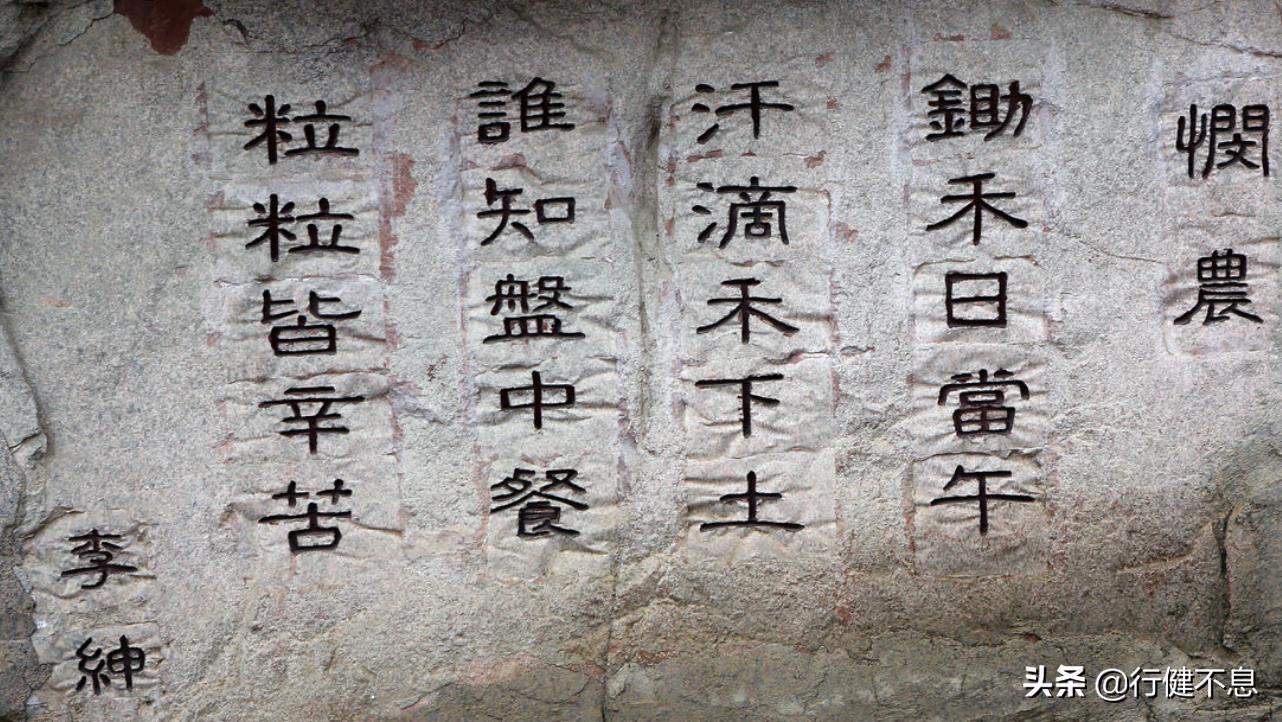 憫農
鋤禾日當午
汗滴禾下土
誰知盤中餐
粒粒皆辛苦
李紳
头条 @行健不息